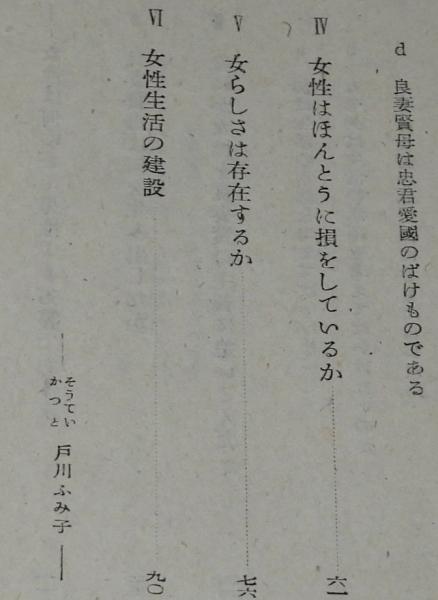 d 良妻賢母は忠君愛國のばけものである
Ⅳ 女性はほんとうに損をしているか……六一
Ⅴ 女らしさは存在するか……七六
Ⅵ 女性生活の建設……九〇
そうてい
かつと
戸川ふみ子